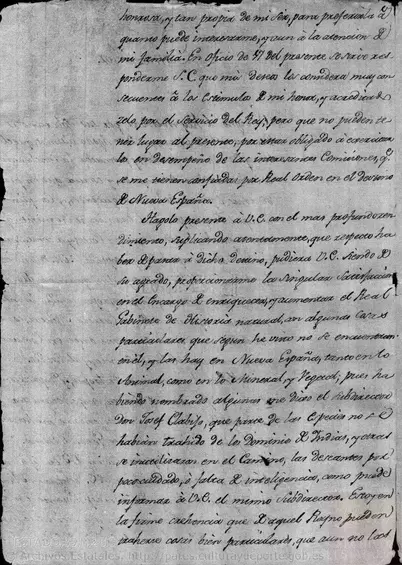 honrosa, y tan propia de mi Ser, para preferirla à
quanto puede interesarme, y aun à la atencion de
mi familia. En oficio de 27 del presente se sirve res-
ponderme S.E. que mis deseos los considera muy con-
secuentes à los estimulos de mi honor, y acreditado
zelo por el servicio del Rey, pero que no pueden te-
ner lugar al presente, por estar obligado à executar
lo en desempeño de las interesantes Comisiones, qe
se me tienen confiadas por Real Orden en el destino
de Nueva España.
Hagolo presente à V.E. con el mas profundo ren-
dimiento, suplicando atentamente, que respecto ha
ber de pasar à dicho destino, pudiera V.E. siendo de
su agrado, proporcionarme la singular satisfaccion
en el Encargo de enriquecer, y aumentar el Real
Gabinete de Historia natural, con algunas cosas
particulares, que segun he visto no se encuentran
en èl, y las hay en Nueva España, tanto en lo
Animal, como en lo Mineral, y Vegetal; pues ha
biendo nombrado algunas me dixo el Subdirector
Don Josef Clabijo, que parte de las Especies no se
habian trahido de los Dominios de Indias, y otras
se inutilizaron en el Camino, las restantes por
poco cuidado, ò falta de inteligencia, como puede
informar à V.E. el mismo Subdirector. Estoy en
la firme creencia que de aquel Reyno pueden
traherse cosas bien particulares, que aun no las
Archivos Estatales, http://pares.culturaydeporte.gob.es